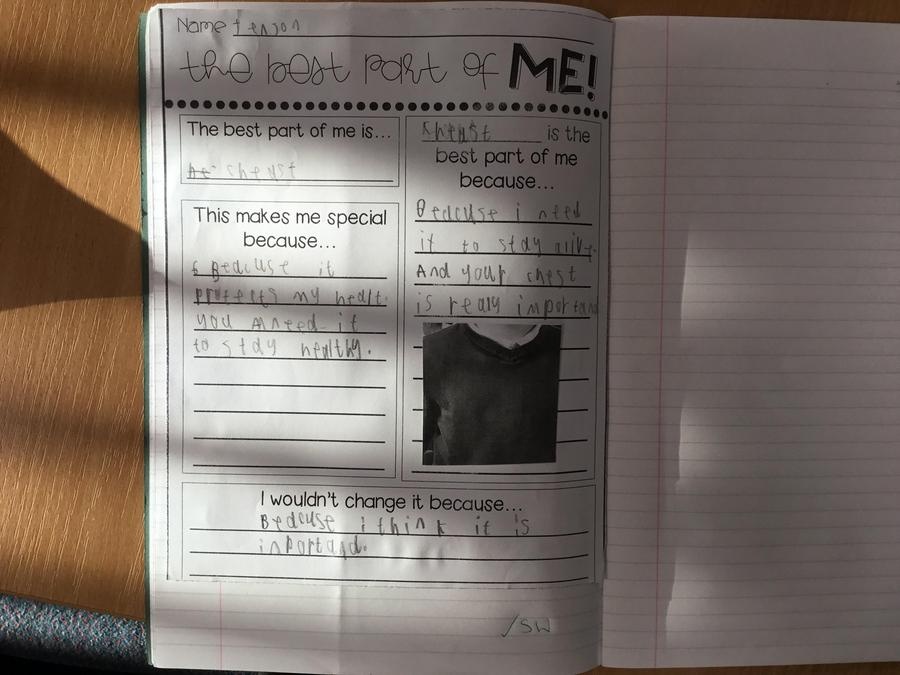 Name
the best part of ME!
The best part of me is...
cheust
This makes me special
because...
Bedcuse it
protects my healt.
you need it
to stdy healthy.
is the
best part of me
because...
Bedcuse i need
it to stdy alive.
And your chest
is realy important
I wouldn't change it because...
Bedcuse i think it is
inportand.
/SW